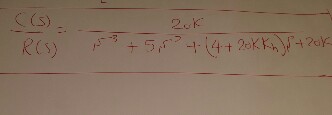 C(S)/R(S) = 20K / (s³ + 5s² + (4+20KKh)s + 20K)